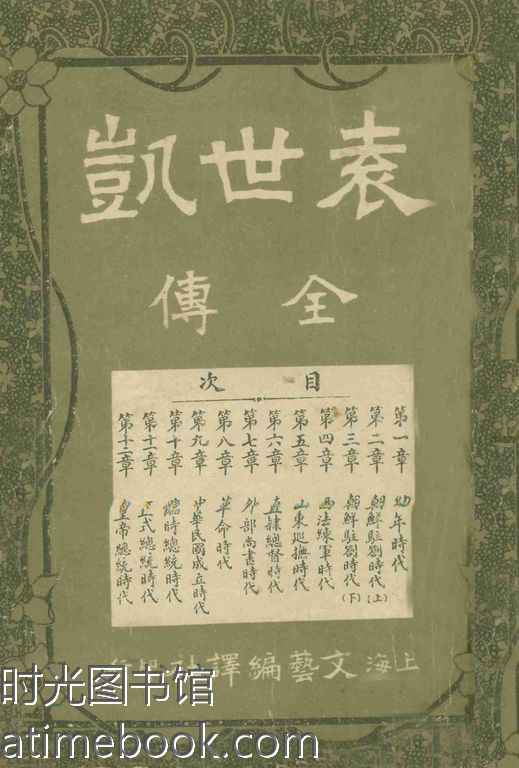 袁世凱
全傳
目次
第一章 幼年時代
第二章 朝鮮駐劄時代(上)
第三章 朝鮮駐劄時代(下)
第四章 西法練軍時代
第五章 山東巡撫時代
第六章 直隸總督時代
第七章 外部尚書時代
第八章 革命時代
第九章 中華民國成立時代
第十章 臨時總統時代
第十一章 正式總統時代
第十二章 皇帝總統時代
上海文藝編譯社
时光图书馆
atimebook.com